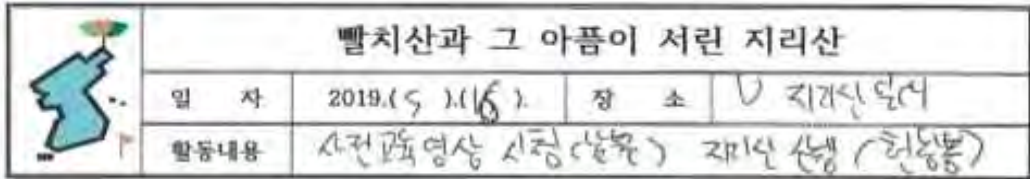 빨치산과 그 아픔이 서린 지리산
일 자 2019.( 5 ).(16). 장 소 지리산
활동내용 사전교육 영상 시청 ( ) 지리산 산행 ( )